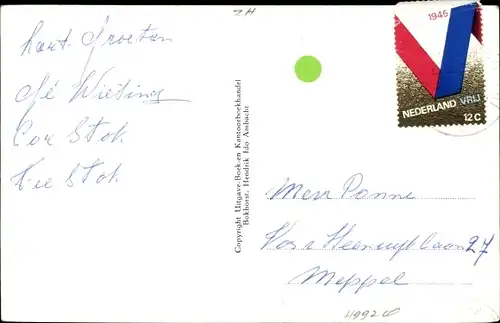 ZH
hart. Groeten
Wieting
Cor Stok
Stok
Copyright Uitgave-Boek-en Kantoorboekhandel
Bokhorst, Hendrik Ido Ambacht
1945
NEDERLAND VRIJ
12 C
Mevr Ponne
27
Meppel